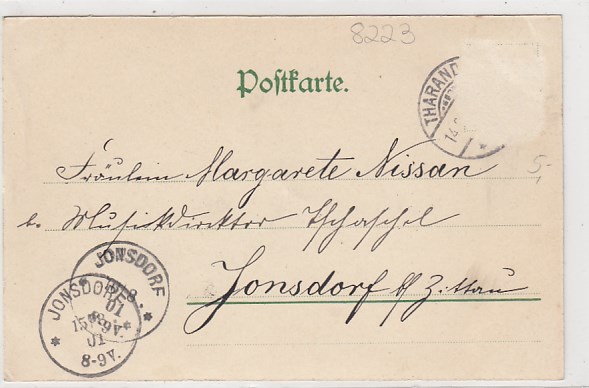 8223
Postkarte.
THARAND
Fräulein Margarete Nissan
b. Musikdirektor Tschaschel
Jonsdorf b/ Zittau
5,-
JONSDORF
01
JONSDORF
15 8-9V.
01
8-9V.